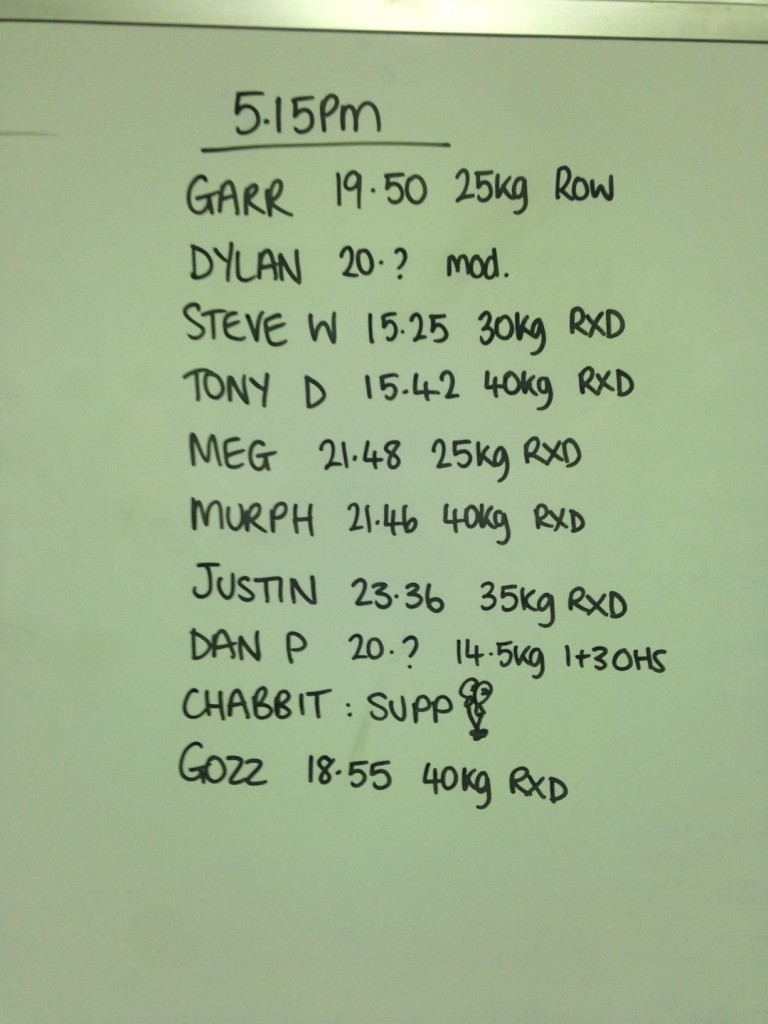 5.15Pm
GARR 19.50 25kg ROW
DYLAN 20.? mod.
STEVE W 15.25 30kg RXD
TONY D 15.42 40kg RXD
MEG 21.48 25kg RXD
MURPH 21.46 40kg RXD
JUSTIN 23.36 35kg RXD
DAN P 20.? 14.5kg 1+3OHS
CHABBIT: SUPP
GOZZ 18.55 40kg RXD